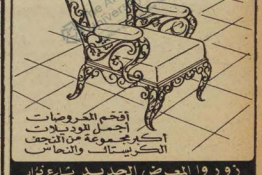 أفخم المعروضات
أجمل الموديلات
أكبر مجموعة من النجف
الكريستال والنحاس
زوروا المعرض الجديد شارع نزار